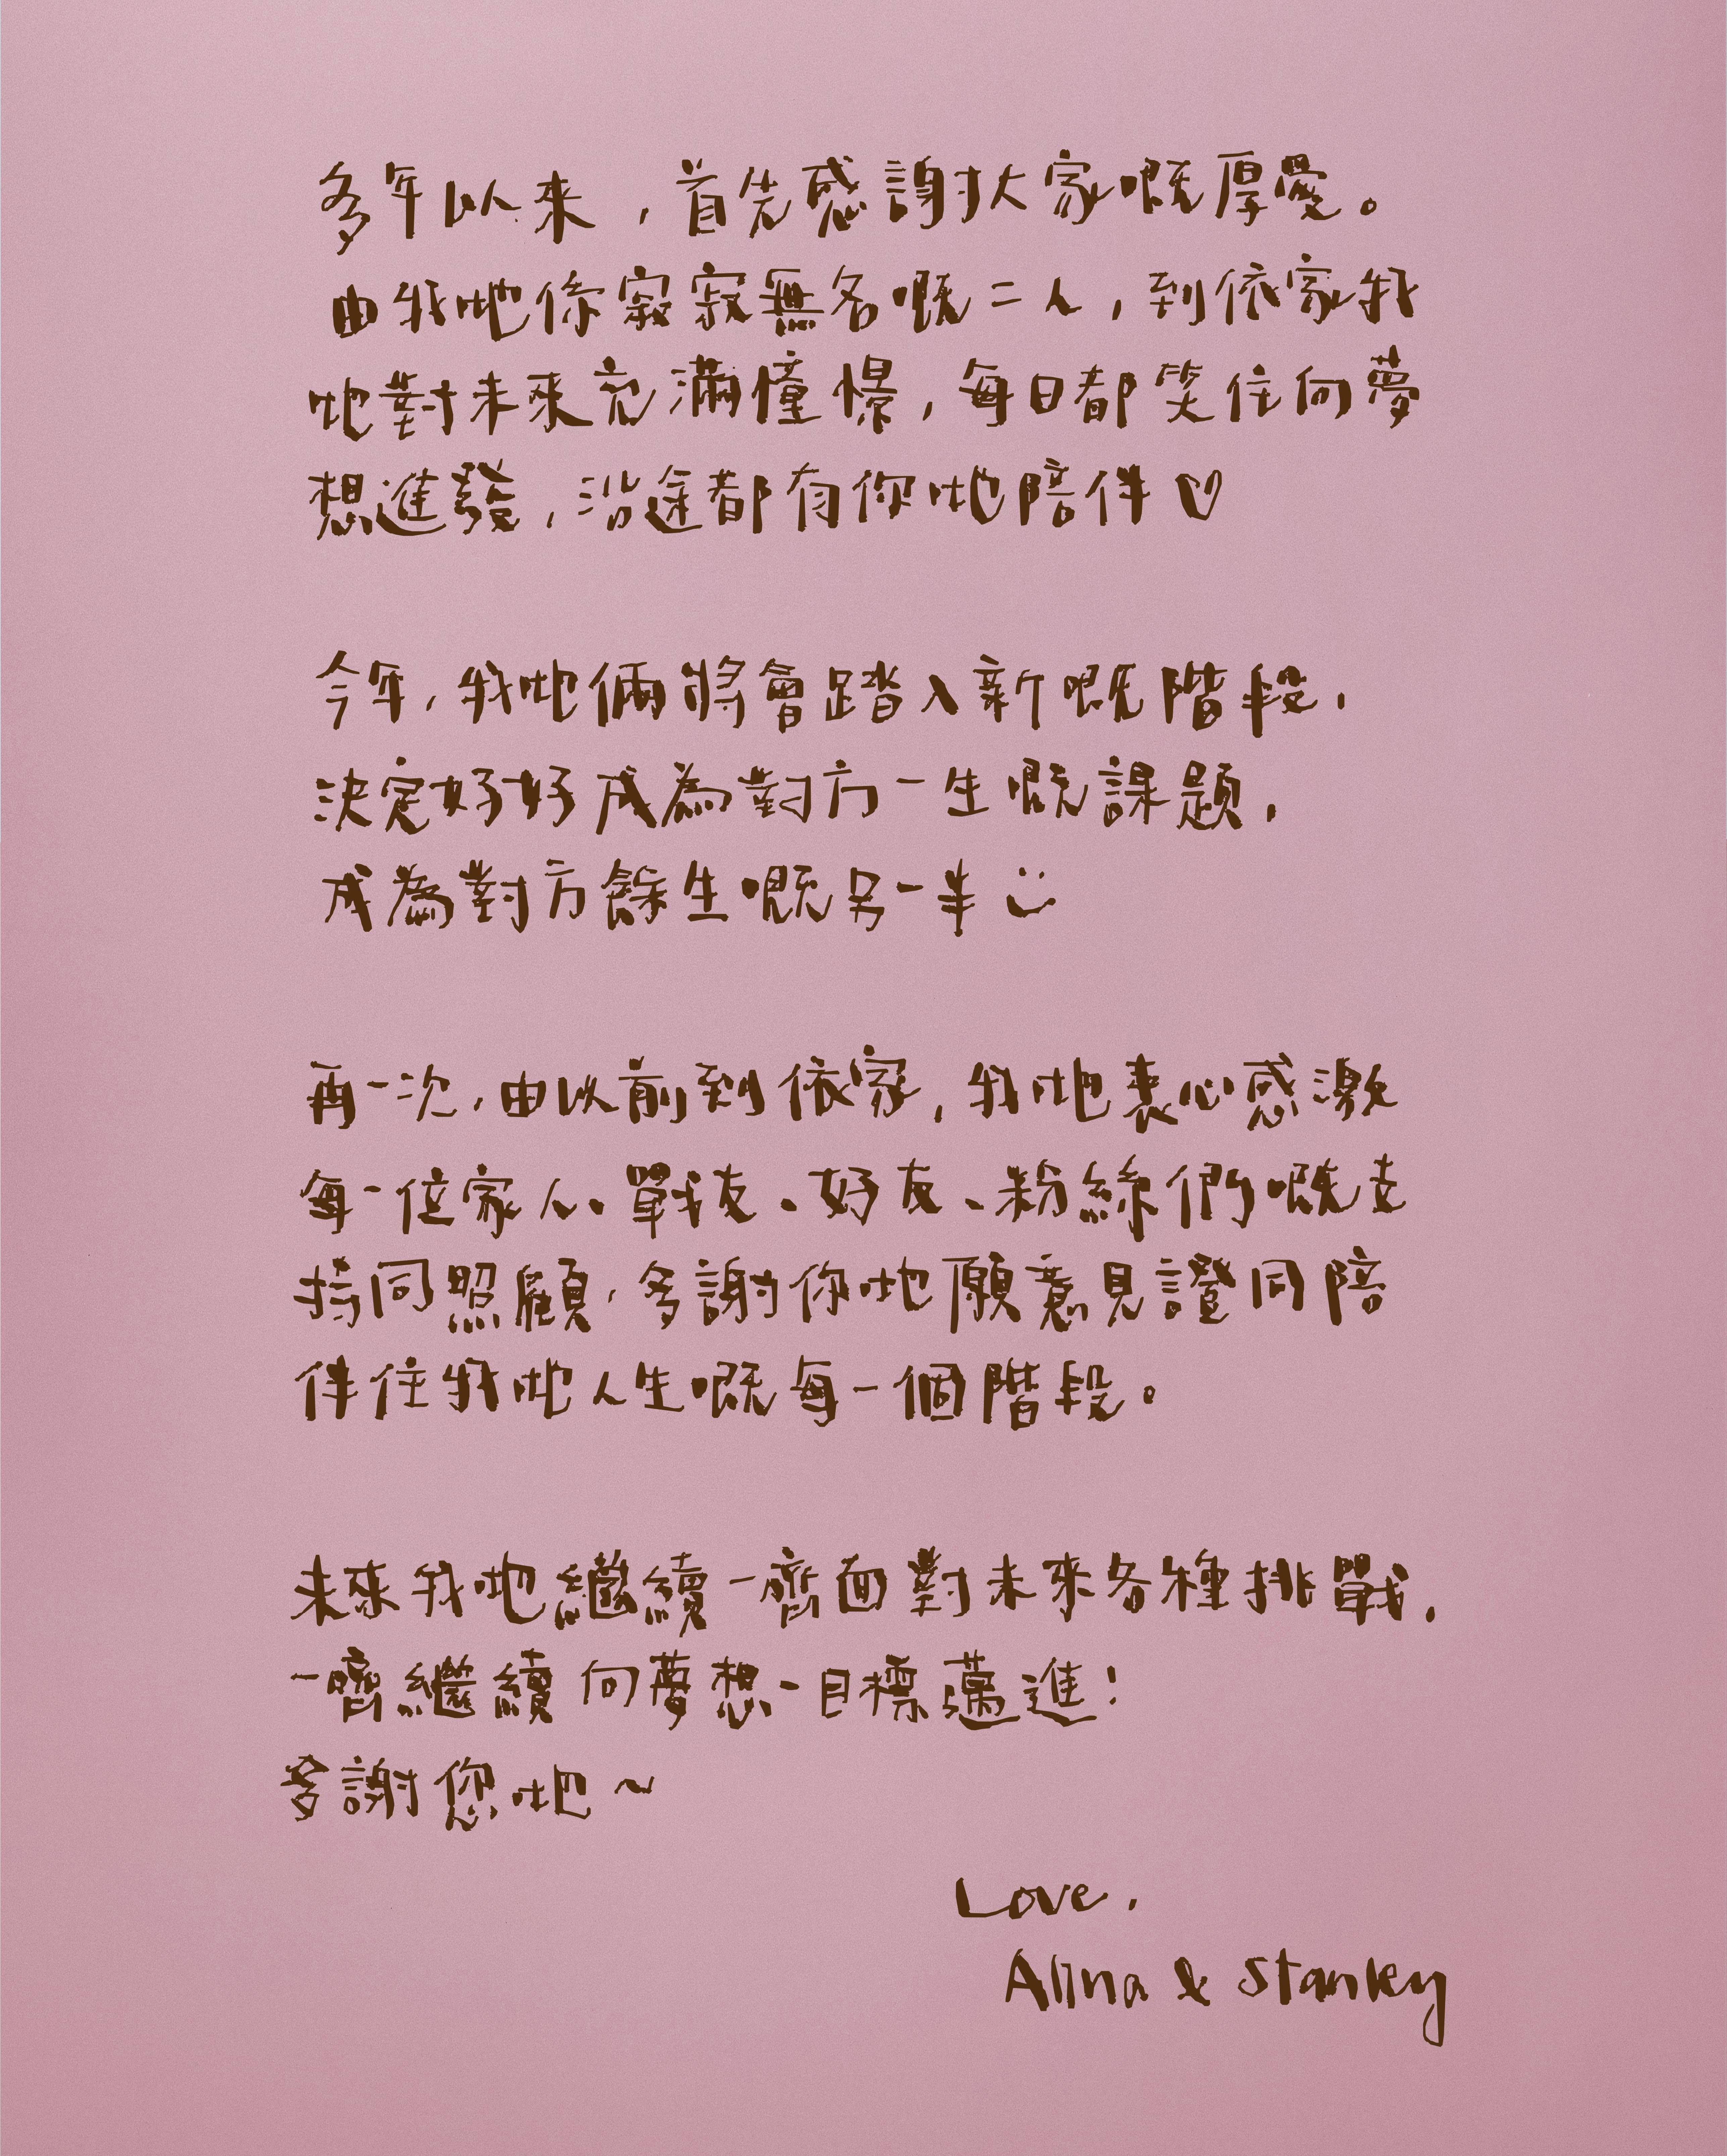 多年以來，首先感謝大家嘅厚愛。
由我哋係寂寂無名嘅二人，到依家我
哋對未來充滿憧憬，每日都笑住向夢
想進發，沿途都有你哋陪伴♡
今年，我哋倆將會踏入新嘅階段，
決定好好成為對方一生嘅課題，
成為對方餘生嘅另一半
再一次，由以前到依家，我哋衷心感激
每一位家人、戰友、好友、粉絲們嘅支
持同照顧，多謝你哋願意見證同陪
伴住我哋人生嘅每一個階段。
未來我哋繼續一齊面對未來各種挑戰，
一齊繼續向夢想、目標邁進！
多謝您哋~
Love,
Alina & Stanley